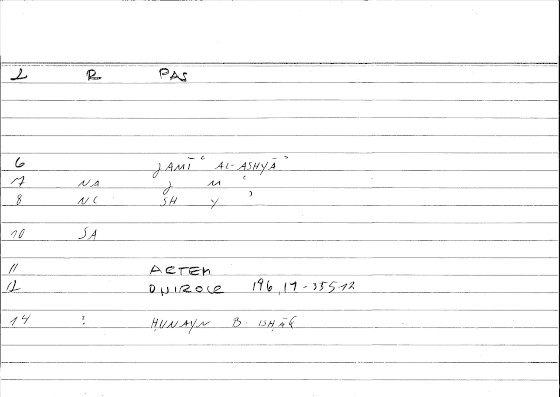 L R PAS
6 JAMĪʿ AL-ASHYĀʾ
7 NA J M ʿ
8 NC SH Y ʾ
10 SA
11 AETEM
12 196,17-35512
14 : HUNAYN B. ISHĀQ